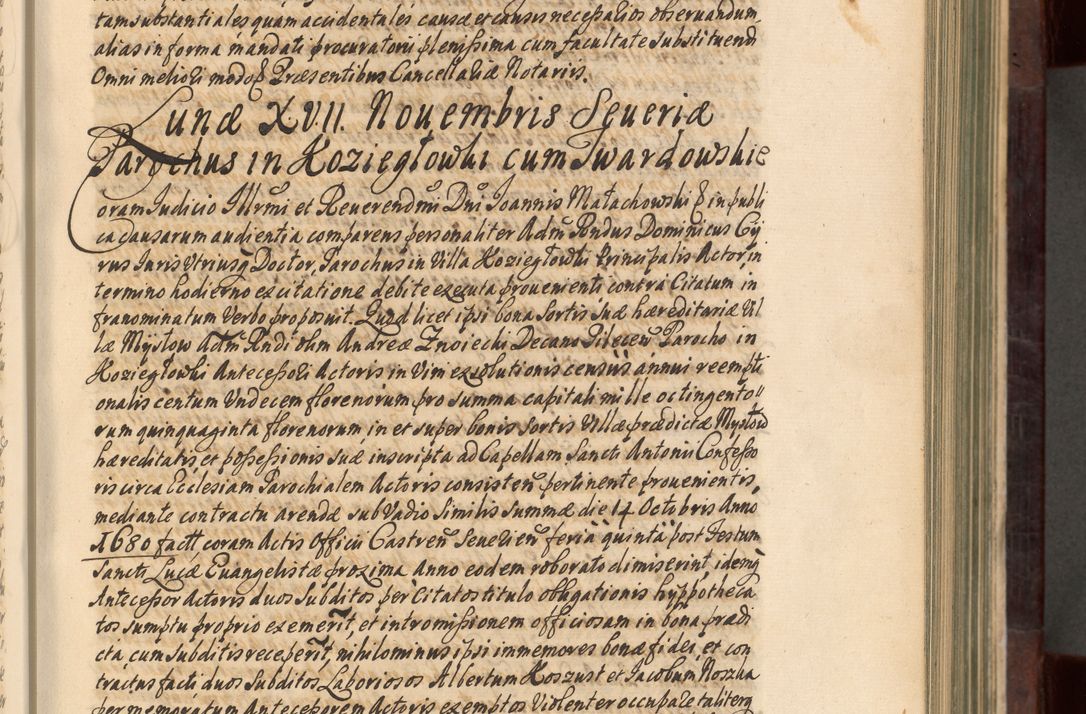 tam substantiales quam accidentales causæ et causis necessarios obseruandum
alias in forma mandati procuratorii plenissima cum facultate substituendi
Omni meliori modo Præsentibus Cancellariæ Notariis.
Lunæ XVII. Nouembris Seueriæ
Parochus in Koziegłowki cum Twardowskie
Coram Judicio Illrmi et Reuerendmi Dni Joannis Małachowski E in publi
ca causarum audientia comparens personaliter Adm Rndus Dominicus Cy
rus Iuris Vtriusq Doctor, Parochus in Villa Koziegłowki Principalis Actor, in
termino hodierno ex citatione debite executa proueniente contra Citatum in
franominatum Verbo proposuit. Quod licet ipsi bona sortis suæ hæreditariæ Vil
læ Mysłow Adm Rndi olim Andreæ Znoiecki Decano Pilecen Parocho in
Koziegłowki Antecessori Actoris in Vim exolutionis census annui reempti
onalis centum Vndecem florenorum pro summa capitali mille octingento
rum quinquaginta florenorum in et super bonis sortis Villæ prædictæ Mysłow
hæreditatis et possessionis suæ inscripta ad Capellam Sancti Antonii Confesso
ris circa Ecclesiam Parochialem Actoris consisten pertinente prouenientis,
mediante contractu arendæ sub Vadio similis summæ die 14 Octobris Anno
1680 fact coram Actis Officii Castren Seuerien feria quinta post Festum
Sancti Lucæ Euangelistæ proxima Anno eodem roborato dimiserint, idemq
Antecessor Actoris duos Subditos per Citatos titulo obligationis hyppotheca
tos sumptu proprio exemerit, et intromissionem officiosam in bona prædi
cta cum subditis receperit, nihilominus ipsi immemores bonæ fidei, et con
tractus facti duos Subditos Laboriosos Albertum Koszust et Jacobum Noszka
per memoratum Antecessorem Actoris exemptos Violenter occupare taliterq